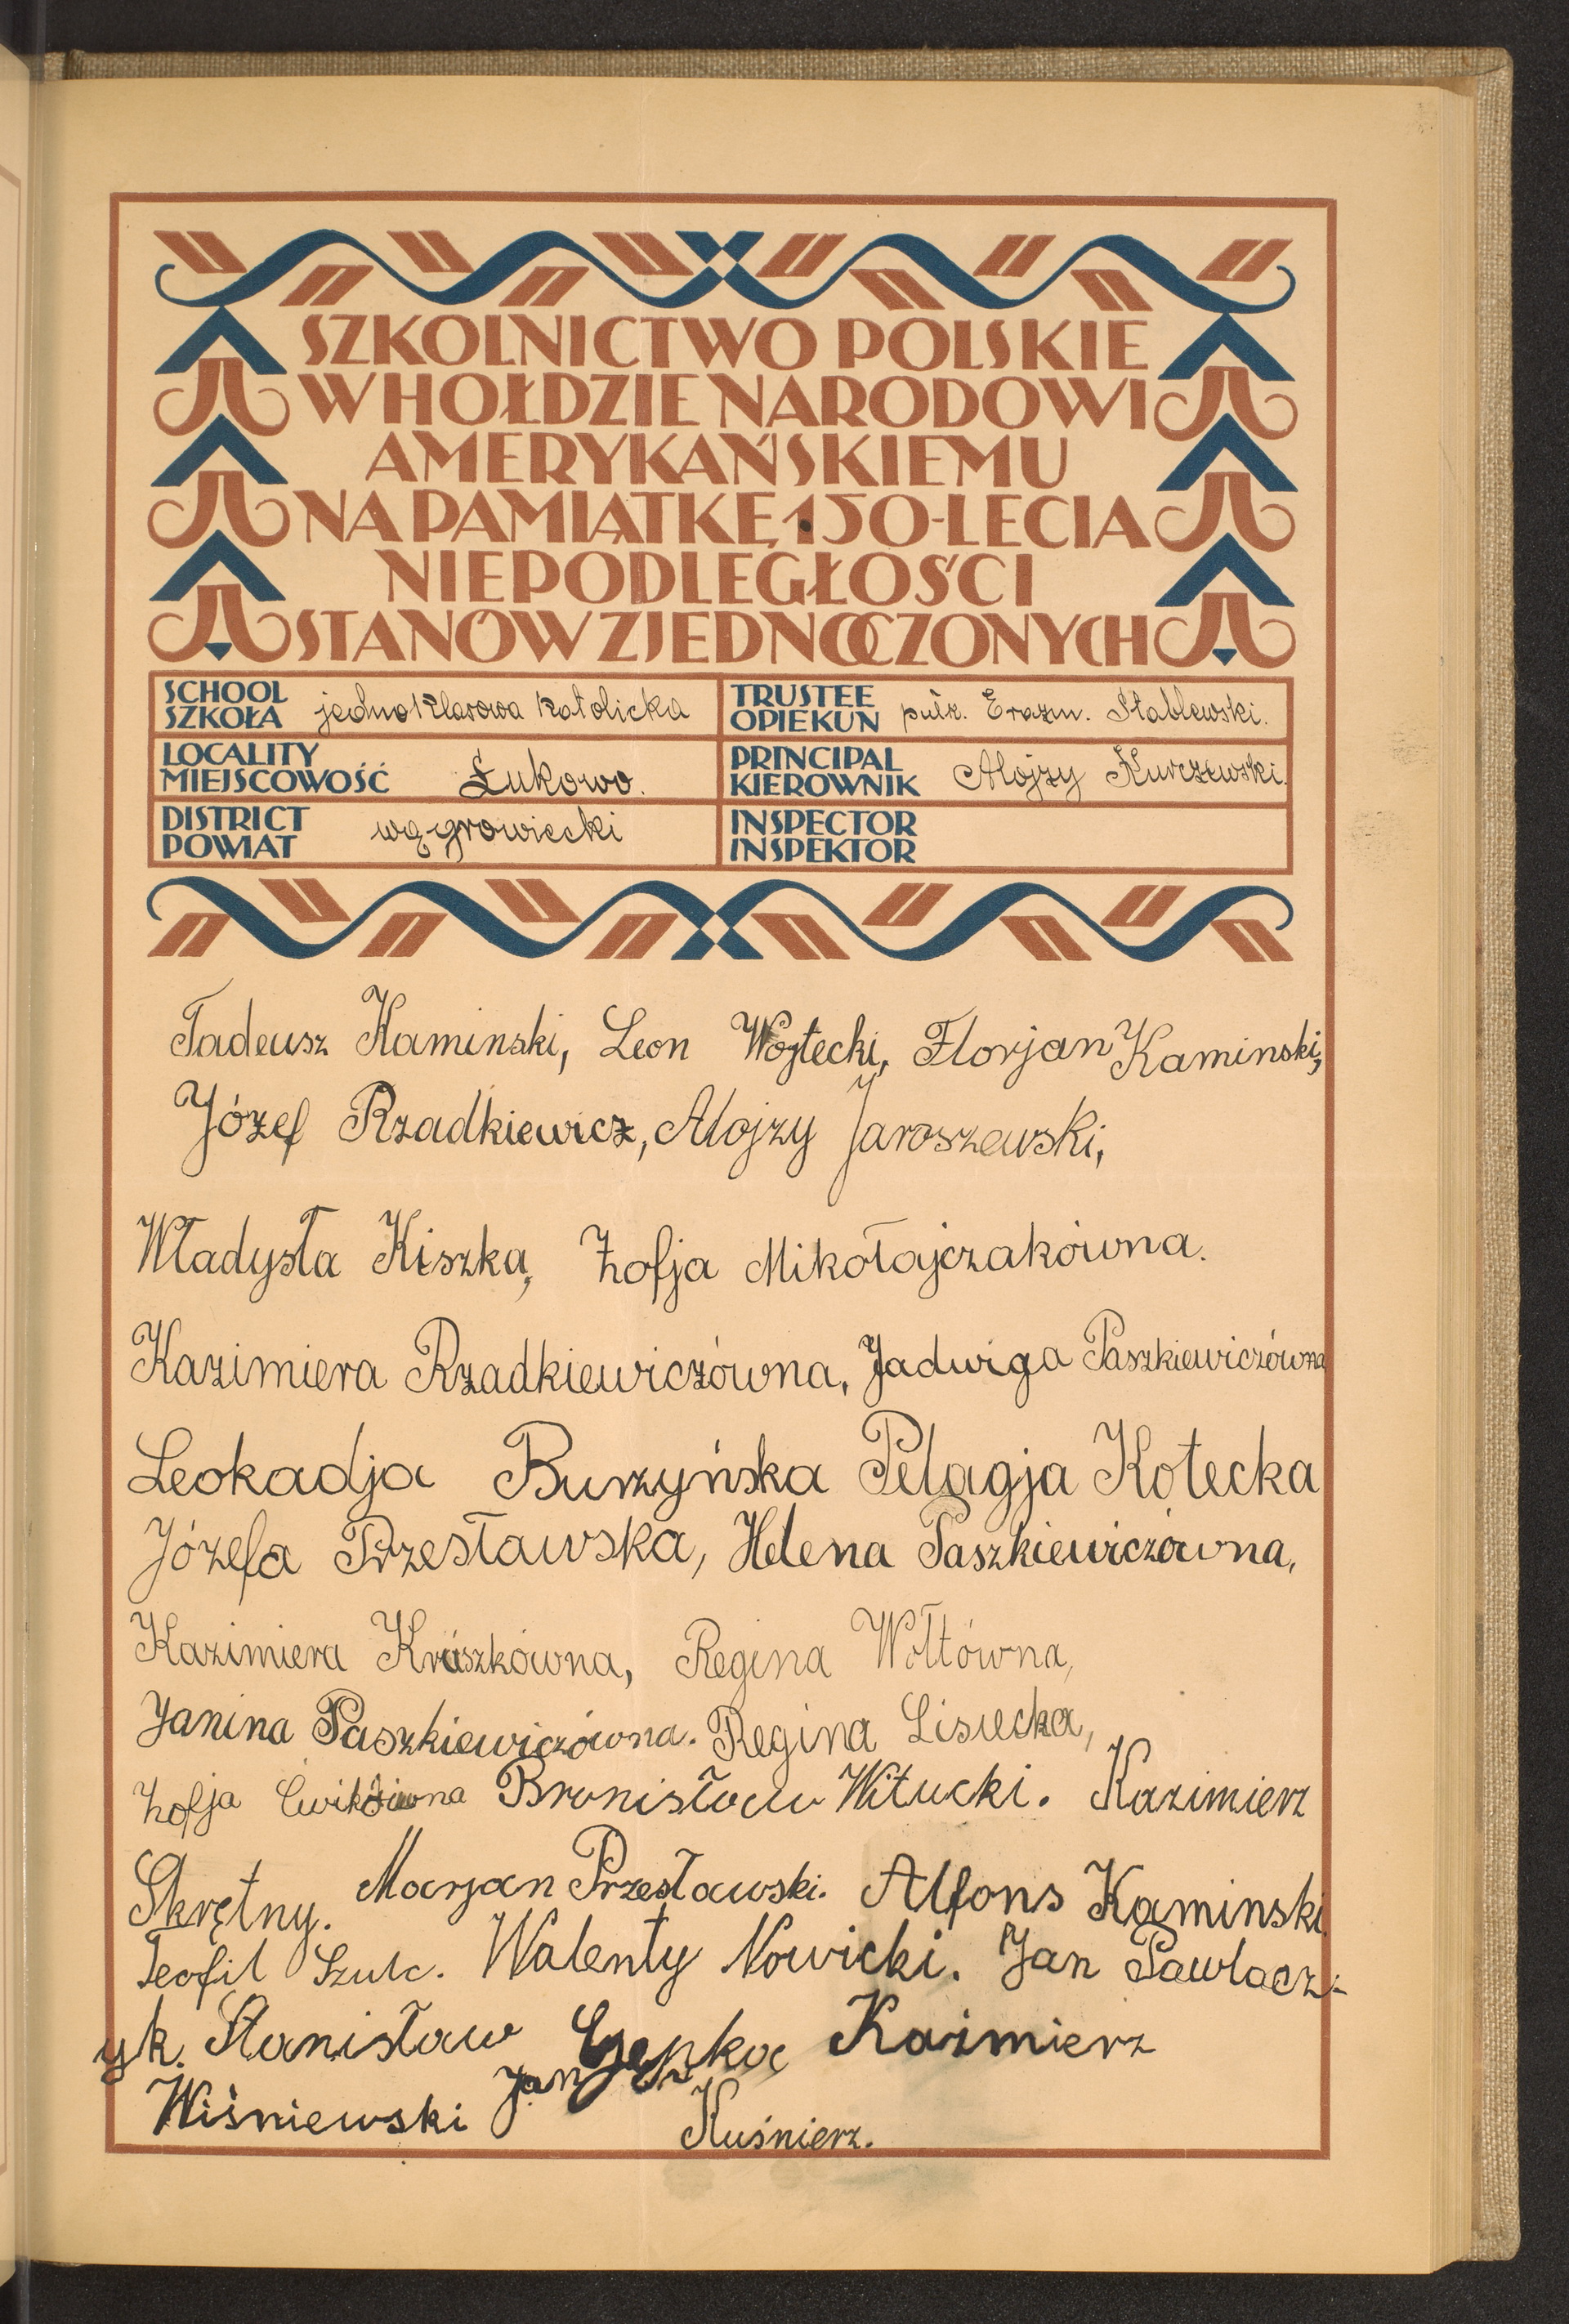 SZKOLNICTWO POLSKIE
W HOŁDZIE NARODOWI
AMERYKAŃSKIEMU
NA PAMIĄTKĘ 150-LECIA
NIEPODLEGŁOŚCI
STANÓW ZJEDNOCZONYCH
SCHOOL
SZKOŁA jednoklasowa katolicka
TRUSTEE
OPIEKUN pułk. Erazm. Stablewski.
LOCALITY
MIEJSCOWOŚĆ Łukowo.
PRINCIPAL
KIEROWNIK Alojzy Kurczewski.
DISTRICT
POWIAT wągrowiecki
INSPECTOR
INSPEKTOR
Tadeusz Kaminski, Leon Wojtecki, Florjan Kaminski,
Józef Rzadkiewicz, Alojzy Jaroszewski,
Władysła Kiszka, Zofja Mikołajczakówna.
Kazimiera Rzadkiewiczówna, Jadwiga Paszkiewiczówna
Leokadja Burzyńska Pelagja Kotecka
Józefa Przesławska, Helena Paszkiewiczówna,
Kazimiera Kruszkówna, Regina Wołtówna,
Janina Paszkiewiczówna. Regina Lisiecka,
Zofja Bronisław Witucki. Kazimierz
Skrętny. Marjan Przesławski. Alfons Kaminski
Teofil Szulc. Walenty Nowicki. Jan Pawlacz-
yk. Stanisław Kazimierz
Wiśniewski Jan Kuśnierz.